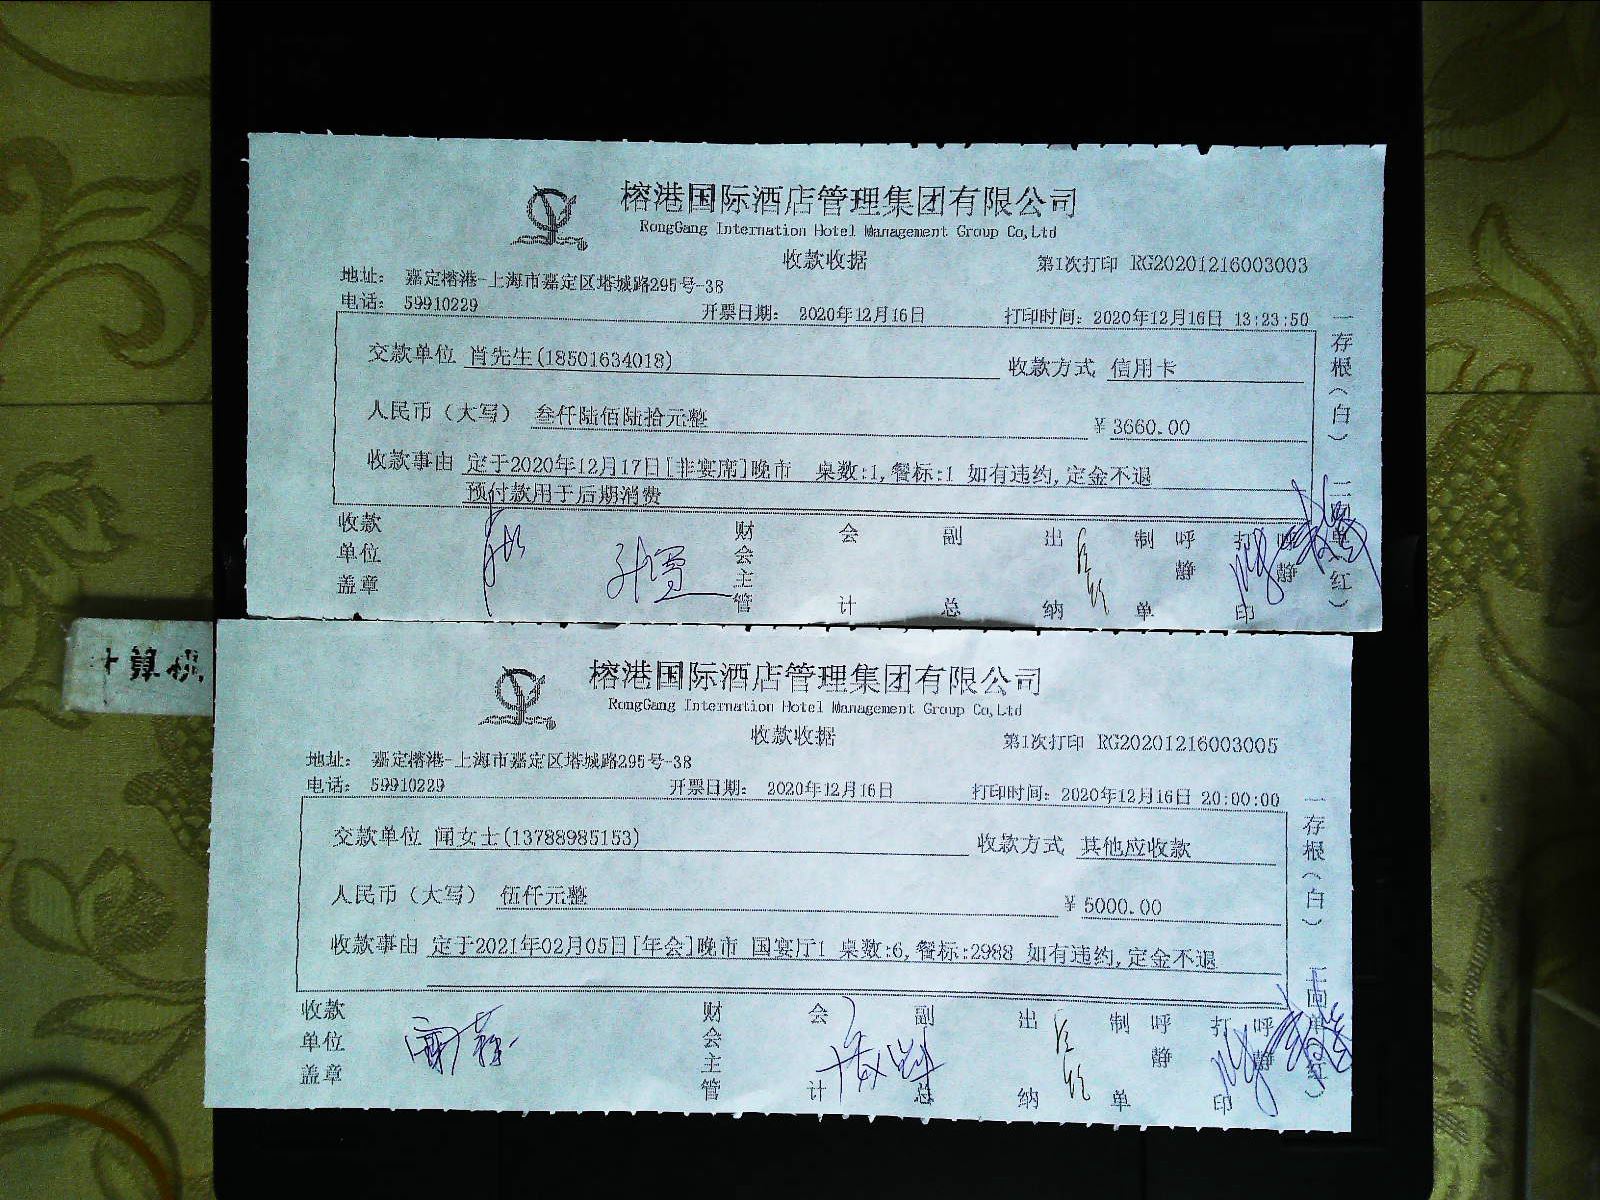 榕港国际酒店管理集团有限公司
RongGang Internation Hotel Management Group Co,Ltd
收款收据
第1次打印 RG20201216003003
地址： 嘉定榕港-上海市嘉定区塔城路295号-38
电话： 59910229 开票日期： 2020年12月16日 打印时间：2020年12月16日 13:23:50
交款单位 肖先生(18501634018) 收款方式 信用卡
人民币（大写） 叁仟陆佰陆拾元整 ￥3660.00
收款事由 定于2020年12月17日[非宴席]晚市 桌数:1,餐标:1 如有违约,定金不退
预付款用于后期消费
收款单位盖章 财会主管 会计 副总 出纳 制单 呼静 打印 呼静
一存根（白） 二副单（红）
计算机
榕港国际酒店管理集团有限公司
RongGang Internation Hotel Management Group Co,Ltd
收款收据
第1次打印 RG20201216003005
地址： 嘉定榕港-上海市嘉定区塔城路295号-38
电话： 59910229 开票日期： 2020年12月16日 打印时间：2020年12月16日 20:00:00
交款单位 闻女士(13788985153) 收款方式 其他应收款
人民币（大写） 伍仟元整 ￥5000.00
收款事由 定于2021年02月05日[年会]晚市 国宴厅1 桌数:6,餐标:2988 如有违约,定金不退
收款单位盖章 财会主管 会计 副总 出纳 制单 呼静 打印 呼静
一存根（白）